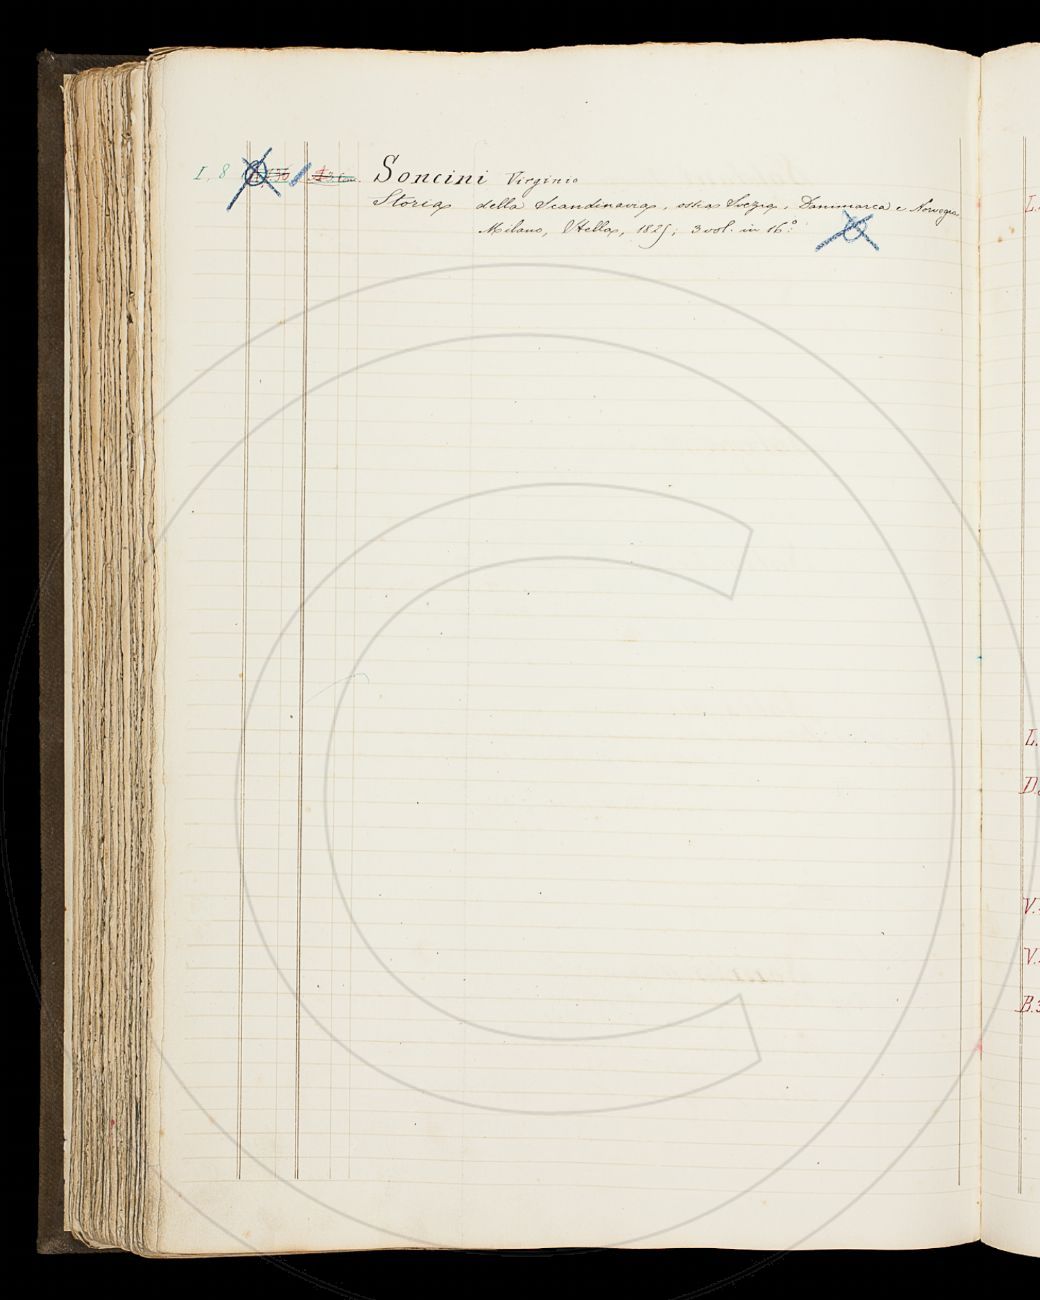 I. 8
Soncini Virginio
Storia della Scandinavia, ossia Svezia, Danimarca e Norvegia
Milano, Stella, 1825; 3 vol. in 16.°
L.
L.
D.
V.
V.
B. 3